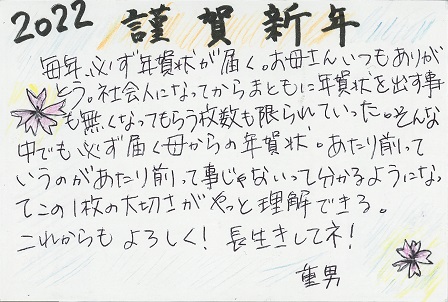 2022 謹賀新年
毎年、必ず年賀状が届く。お母さんいつもありが
とう。社会人になってからまともに年賀状を出す事
も無くなってもらう枚数も限られていった。そんな
中でも必ず届く母からの年賀状。あたり前って
いうのがあたり前って事じゃないって分かるようになっ
てこの1枚の大切さがやっと理解できる。
これからもよろしく!長生きしてネ!
重男